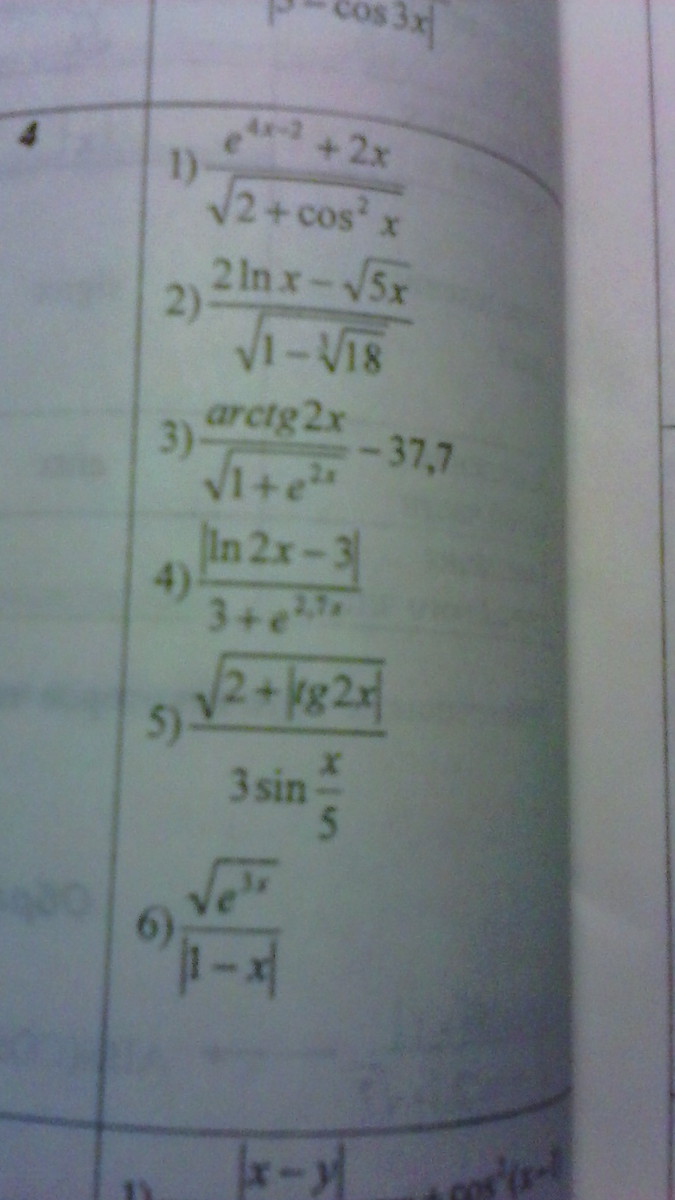 |5 − cos3x|
4
1) (e^(4x−2) + 2x) / √(2 + cos² x)
2) (2 ln x − √(5x)) / √(1 − ∛18)
3) arctg2x / √(1 + e^(2x)) − 37,7
4) |ln 2x − 3| / (3 + e^(2,7x))
5) √(2 + |tg2x|) / (3 sin (x/5))
6) √(e^(3x)) / |1 − x|
1) |x − y|